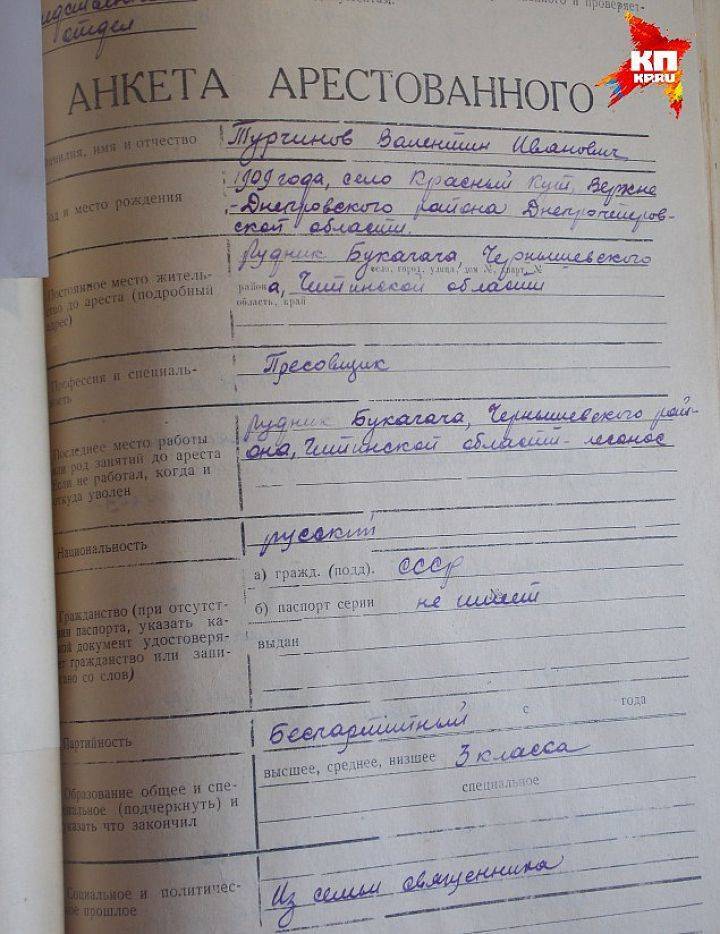 отдел
и проверяет-
КП
KP.RU
АНКЕТА АРЕСТОВАННОГО
имя и отчество
Турчинов Валентин Иванович
и место рождения
1909 года, село Красный Кут, Верхне
-Днепровского района Днепропетров-
ской области.
Постоянное место житель-
до ареста (подробный
Рудник Букачача, Чернышевского
село, город, улица, дом №, кварт. №
района, Читинской области
область, край
Профессия и специаль-
Пресовщик
Последнее место работы
или род занятий до ареста
Если не работал, когда и
откуда уволен
Рудник Букачача, Чернышевского рай-
она, Читинской области - лесонос
Национальность
русский
Гражданство (при отсутст-
паспорта, указать ка-
документ удостоверя-
гражданство или запи-
со слов)
а) гражд. (подд). СССР
б) паспорт серии не имеет
выдан
Партийность
Беспартийный с года
Образование общее и спе-
циальное (подчеркнуть) и
указать что закончил
высшее, среднее, низшее 3 класса
специальное
Социальное и политичес-
прошлое
Из семьи священника